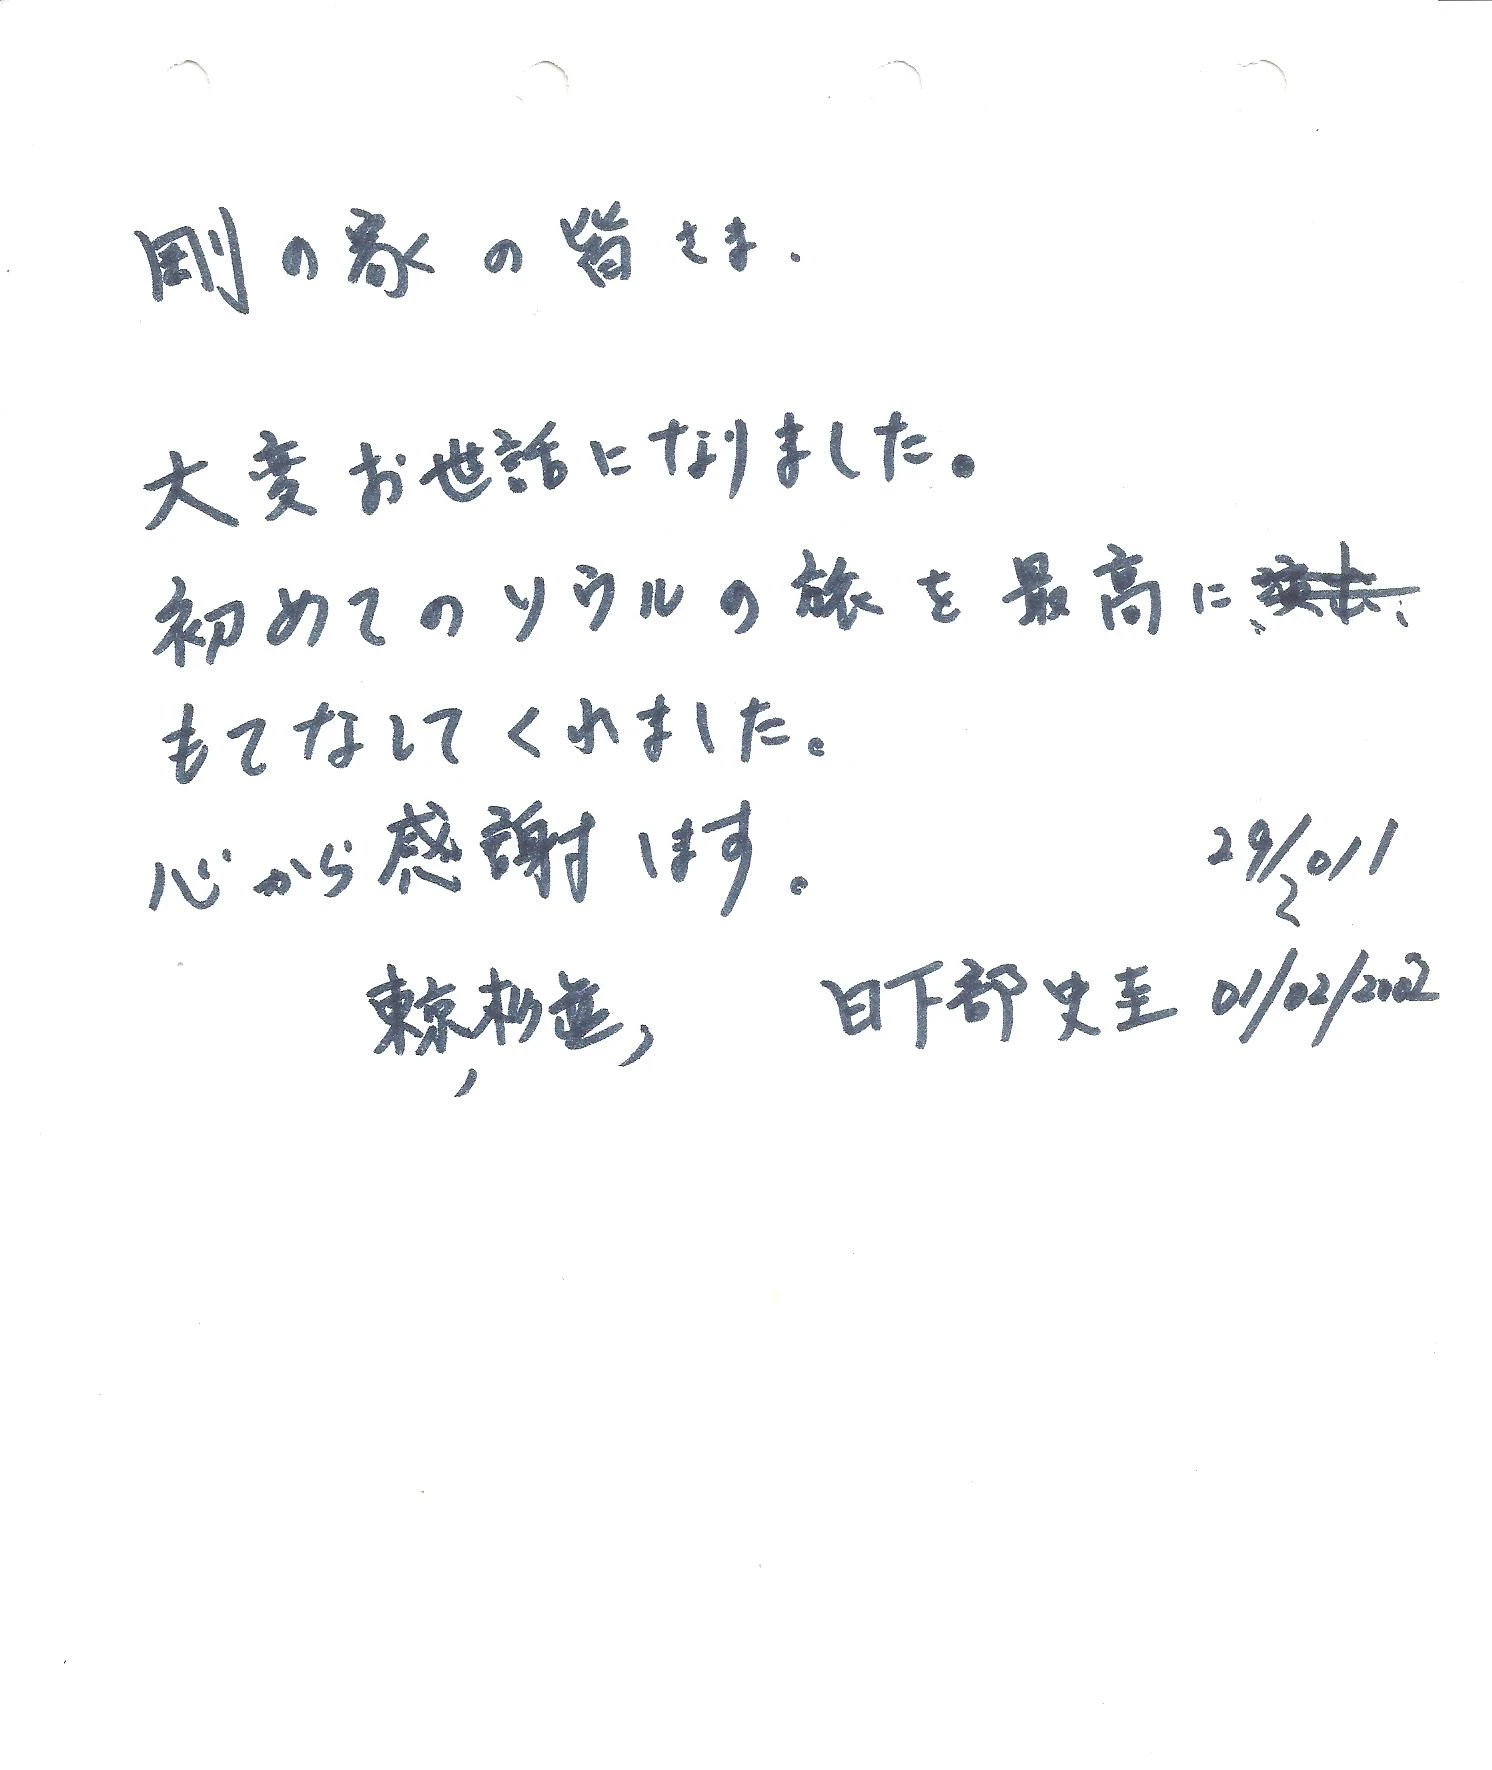 剛の家の皆さま.
大変お世話になりました。
初めてのソウルの旅を最高に
もてなしてくれました。
心から感謝します。
29/2011
2
東京,杉並, 日下部史圭 01/02/2002